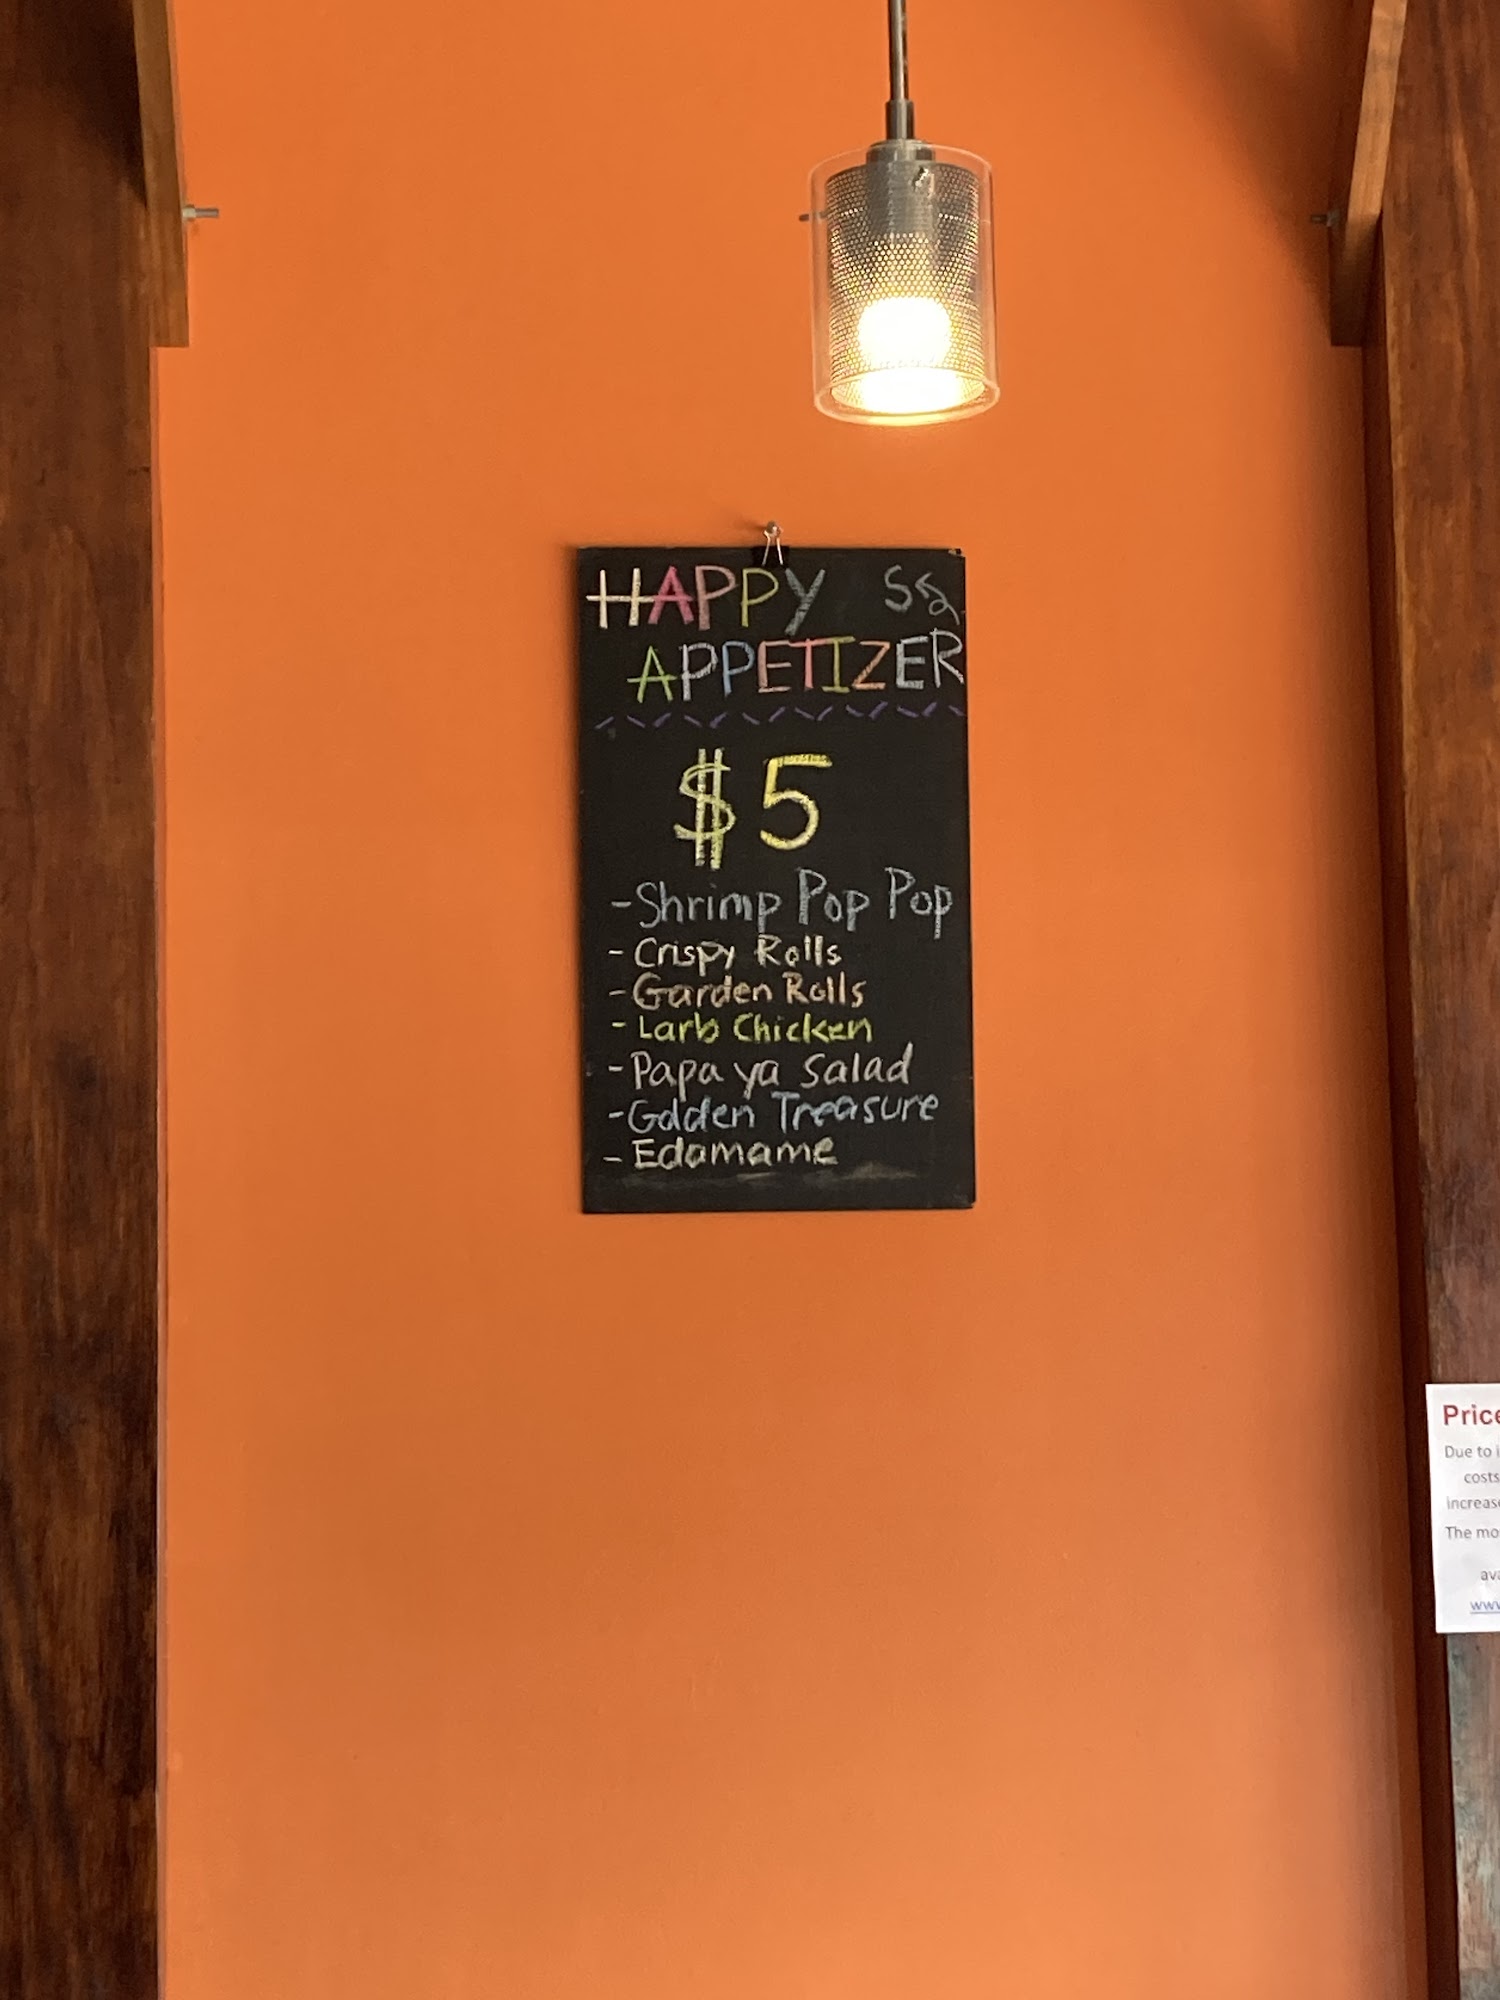 HAPPY
APPETIZERS
$5
-Shrimp Pop Pop
-Crispy Rolls
-Garden Rolls
-Larb Chicken
-Papaya Salad
-Golden Treasure
-Edamame
Price
Due to i
costs
increase
The mo
ava
www